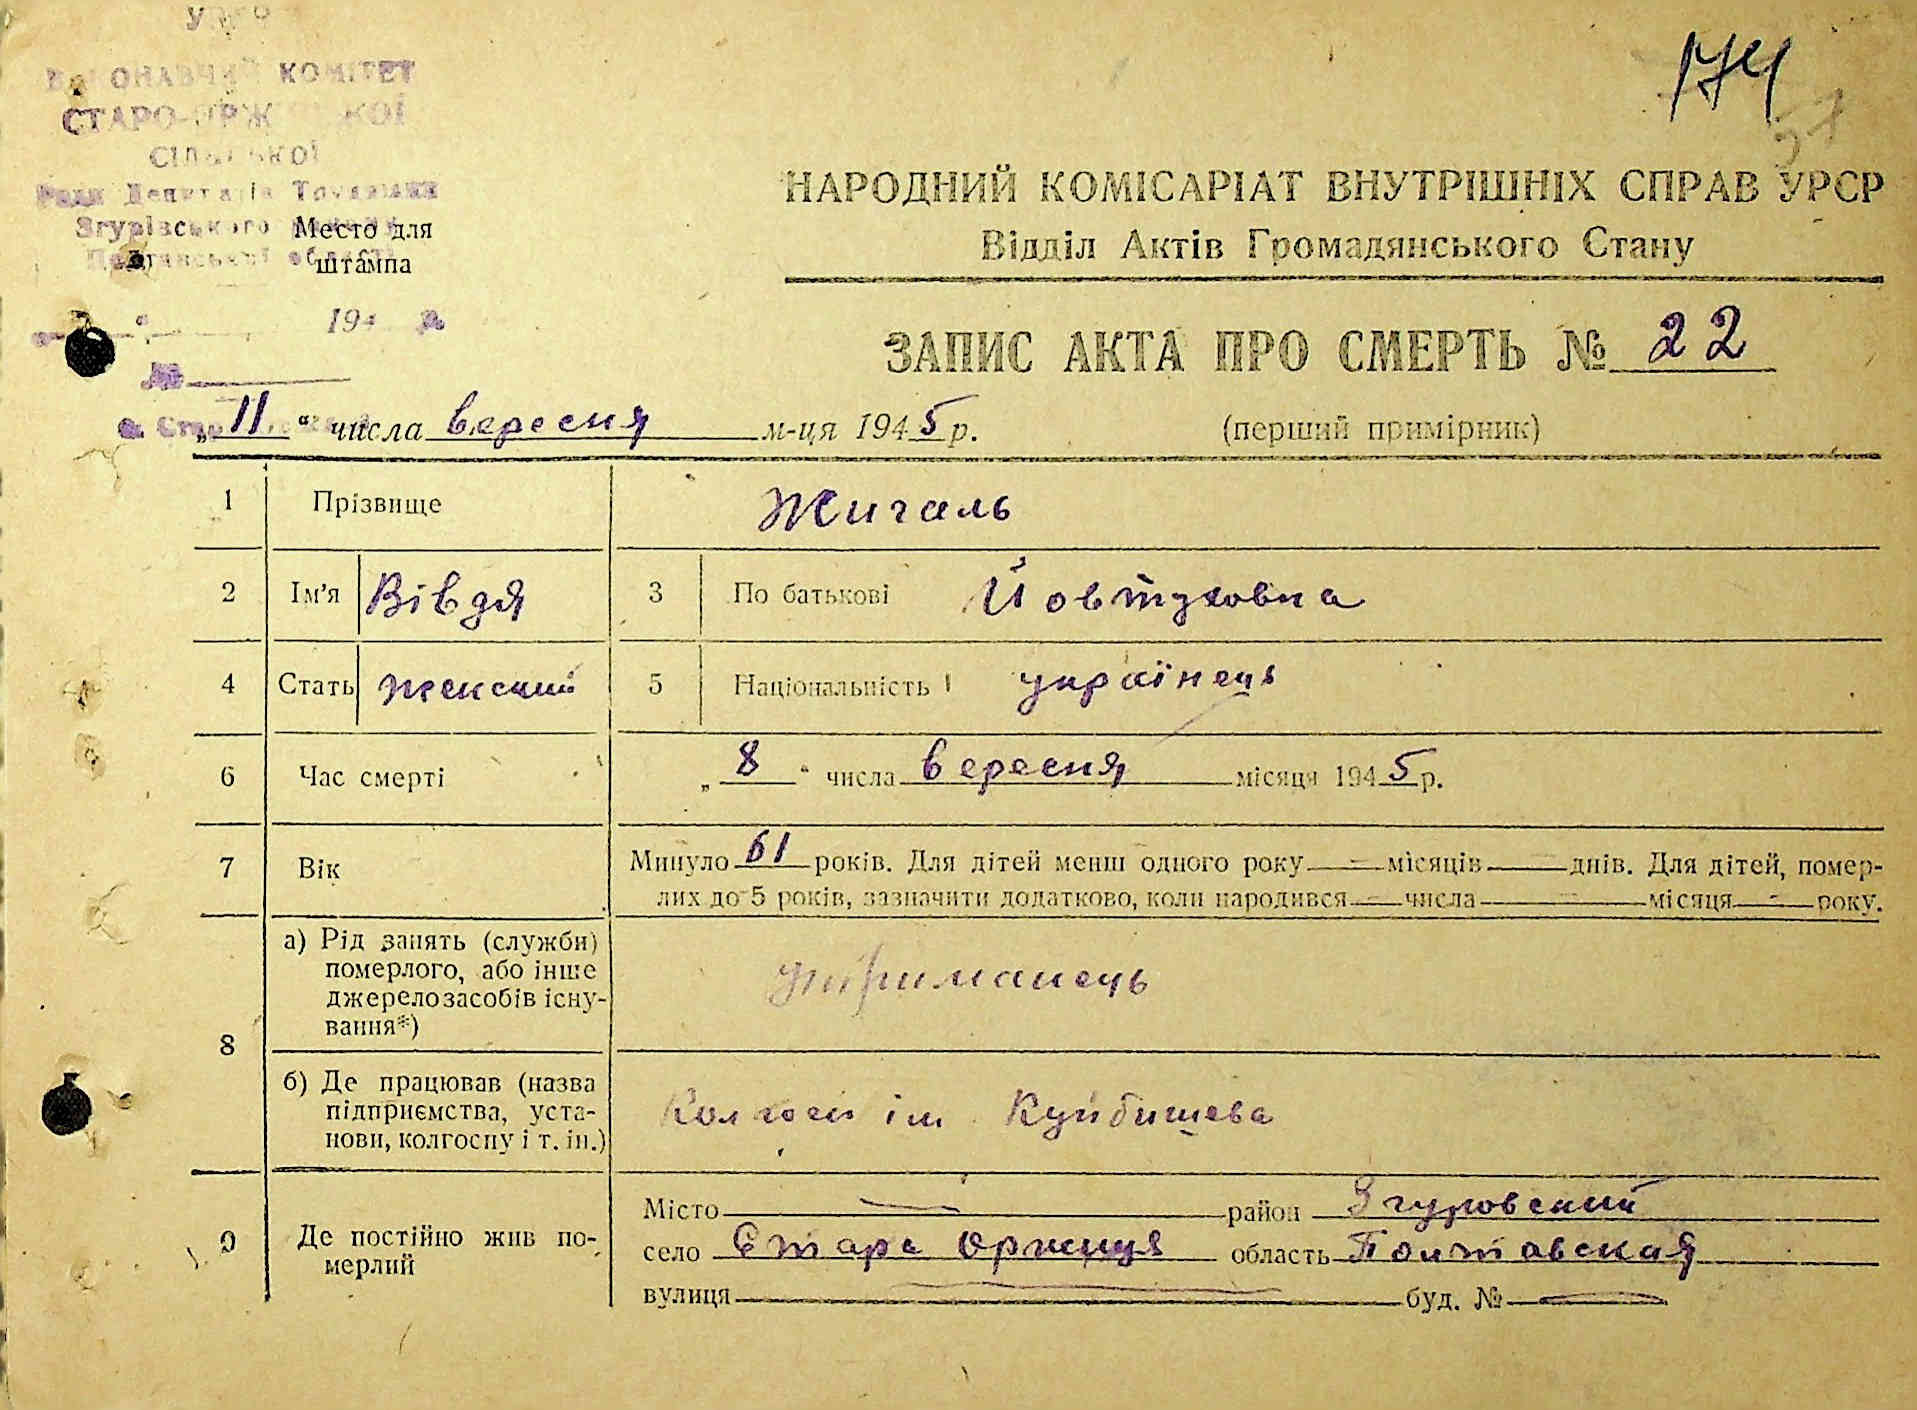 КОМІТЕТ
174
НАРОДНИЙ КОМІСАРІАТ ВНУТРІШНІХ СПРАВ УРСР
Відділ Актів Громадянського Стану
Место для
штампа
194 р.
№
ЗАПИС АКТА ПРО СМЕРТЬ № 22
„11“ числа вересня м-ця 1945 р.
(перший примірник)
1 Прізвище Жигаль
2 Ім'я Вівдя 3 По батькові Йовтуховна
4 Стать женский 5 Національність українець
6 Час смерті „8“ числа вересня місяця 1945 р.
7 Вік Минуло 61 років. Для дітей менш одного року — місяців — днів. Для дітей, помер-
лих до 5 років, зазначити додатково, коли народився — числа — місяця — року.
8 а) Рід занять (служби)
померлого, або інше
джерело засобів існу-
вання*)
утриманець
б) Де працював (назва
підприємства, уста-
нови, колгоспу і т. ін.)
Колгосп ім Куйбишева
9 Де постійно жив по-
мерлий
Місто — район Згуровский
село Стара Оржиця область Полтавская
вулиця — буд. № —